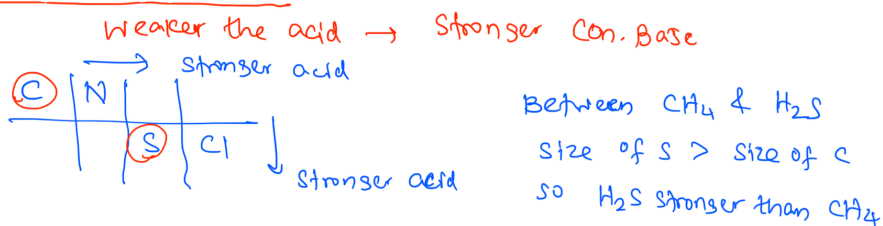 Weaker the acid → Stronger Con. Base
→ stronger acid
C N
S Cl
↓ Stronger acid
Between CH₄ & H₂S
Size of S > Size of C
so H₂S stronger than CH₄